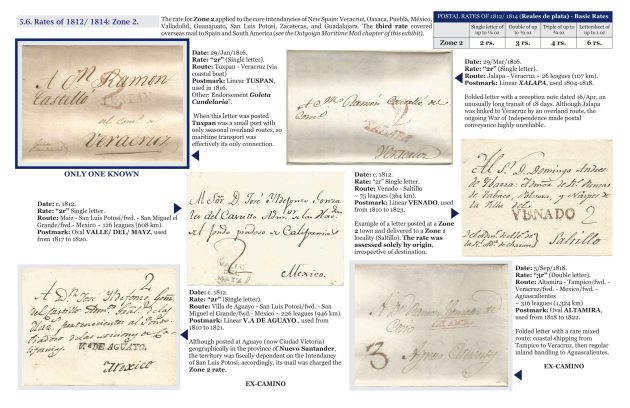 5.6. Rates of 1812/ 1814: Zone 2.
The rate for Zone 2 applied to the core intendancies of New Spain: Veracruz, Oaxaca, Puebla, México,
Valladolid, Guanajuato, San Luis Potosí, Zacatecas, and Guadalajara. The third rate covered
overseas mail to Spain and South America (see the Outgoing Maritime Mail chapter of this exhibit).
POSTAL RATES OF 1812/ 1814 (Reales de plata) - Basic Rates
Single letter of up to ½ oz
Double of up to ¾ oz
Triple of up to ¾ oz
Lettersheet of up to 1 oz
Zone 2
2 rs.
3 rs.
4 rs.
5 rs.
A Dn Ramon
Castillo
Veracruz
ONLY ONE KNOWN
Date: 29/Jan/1816.
Rate: "2r" (Single letter).
Route: Tuxpan - Veracruz (via
coastal boat)
Postmark: Linear TUSPAN,
used in 1816.
Other: Endorsement Goleta
Candelaria".
When this letter was posted
Tuxpan was a small port with
only seasonal overland routes, so
maritime transport was
effectively its only connection.
Ramon Castillo del
Veracruz
Date: 29/Mar/1816.
Rate: "2r" (Single letter).
Route: Jalapa - Veracruz ~ 26 leagues (107 km).
Postmark: Linear XALAPA, used 1804-1818.
Folded letter with a reception note dated 16/Apr, an
unusually long transit of 18 days. Although Jalapa
was linked to Veracruz by an overland route, the
ongoing War of Independence made postal
conveyance highly unreliable.
Date: c. 1812.
Rate: "2r" Single letter.
Route: Maiz - San Luis Potosí/fwd. - San Miguel el
Grande/fwd.- Mexico ~ 126 leagues (608 km).
Postmark: Oval VALLE/ DEL/ MAYZ, used
from 1817 to 1820.
Jose Ildefonso Gonza
del Castillo
el fondo piadoso de Californias
Mexico.
Date: c. 1812.
Rate: "2r" Single letter.
Route: Venado - Saltillo
~ 75 leagues (364 km).
Postmark: Linear VENADO, used
from 1810 to 1823.
Example of a letter posted at a Zone
2 town and delivered to a Zone 1
locality (Saltillo). The rate was
assessed solely by origin,
irrespective of destination.
Domingo Andres
VENADO 2
Saltillo
A Dn Jose Ildefonso
del Castillo
2
Va DE AGUAYO.
Mexico
Date: c. 1812.
Rate: "2r" (Single letter).
Route: Villa de Aguayo - San Luis Potosí/fwd. - San
Miguel el Grande/fwd.- Mexico ~ 226 leagues (946 km).
Postmark: Linear V.A DE AGUAYO., used from
1810 to 1821.
Although posted at Aguayo (now Ciudad Victoria)
geographically in the province of Nuevo Santander,
the territory was fiscally dependent on the Intendancy
of San Luis Potosí; accordingly, its mail was charged the
Zone 2 rate.
EX-CAMINO
3
Date: 5/Sep/1818.
Rate: "3r" (Double letter).
Route: Altamira - Tampico/fwd. -
Veracruz/fwd. - Mexico/fwd. -
Aguascalientes
~ 316 leagues (1,324 km)
Postmark: Oval ALTAMIRA,
used from 1818 to 1822.
Folded letter with a rare mixed
route: coastal shipping from
Tampico to Veracruz, then regular
inland handling to Aguascalientes.
EX-CAMINO